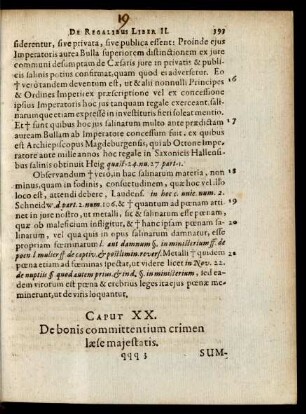 19
DE REGALIBUS LIBER II. 393
siderentur, sive privata, sive publica essent: Proinde ejus
Imperatoris aurea Bulla superiorem distinctionem ex jure
communi desumptam de Cæsaris jure in privatis & publi-
cis salinis potius confirmat, quam quod ei adversetur. Eo
† verò tandem deventum est, ut & alii nonnulli Principes 16
& Ordines Imperii ex præscriptione vel ex concessione
ipsius Imperatoris hoc jus tanquam regale exerceant, sali-
narumque etiam expressè in investituris fieri soleat mentio.
Et † sunt quibus hoc jus salinarum multo ante prædictam 17
auream Bullam ab Imperatore concessum fuit, ex quibus
est Archiepiscopus Magdeburgensis, qui ab Ottone Impe-
ratore ante mille annos hoc regale in Saxoniæ Hallensi-
bus salinis obtinuit Heig quæst. 24. nu. 27 part. 1.
Observandum † vero, in hac salinarum materia, non 18
minus, quam in fodinis, consuetudinem, quæ hoc vel illo
loco est, attendi debere, Laudens. in hoc c. unic. num. 2.
Schneidw. d part. 2. num. 106. & † quantum ad pœnam atti- 19
net in jure nostro, ut metalli, sic & salinarum esse pœnam,
quæ ob maleficium infligitur, & † hanc pœnam sa-
linarum, vel qua quis in opus salinarum damnatur, esse
propriam sœminarum l. aut damnum §. in ministerium ff. de
pœn l mulier ff de captiv. & postlimin. revers. Metalli † quidem 20
pœna etiam ad fœminas spectat, ut videre licet in Nov. 22.
de nuptiis § quod autem prius. & ind. §. in ministerium, sed ea-
dem virorum est pœna & crebrius leges itaejus pœnæ me-
minerunt, ut de viris loquantur,
CAPUT XX.
De bonis committentium crimen
læse majestatis.
qqq 3 SUM-